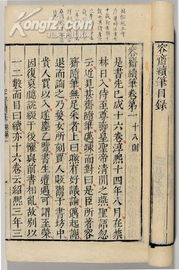 容齋續筆目録
容齋續筆卷第一 十八則
是書先已成十六卷淳熙十四年八月在禁
林日入侍至尊壽皇聖帝清閒之燕聖語忽
云近見甚齋隨筆邁竦而對曰是臣所著容
齋隨筆無足采者上曰煞有好議論邁起謝
退而詢之乃婺女所刻賈人販鬻于書坊中
貴人買以入遂塵乙覽書生遭遇可謂至榮
因復裒臆說綴于後懼與前書相亂故別以
一二數而目曰續亦十六卷云紹熙三年三